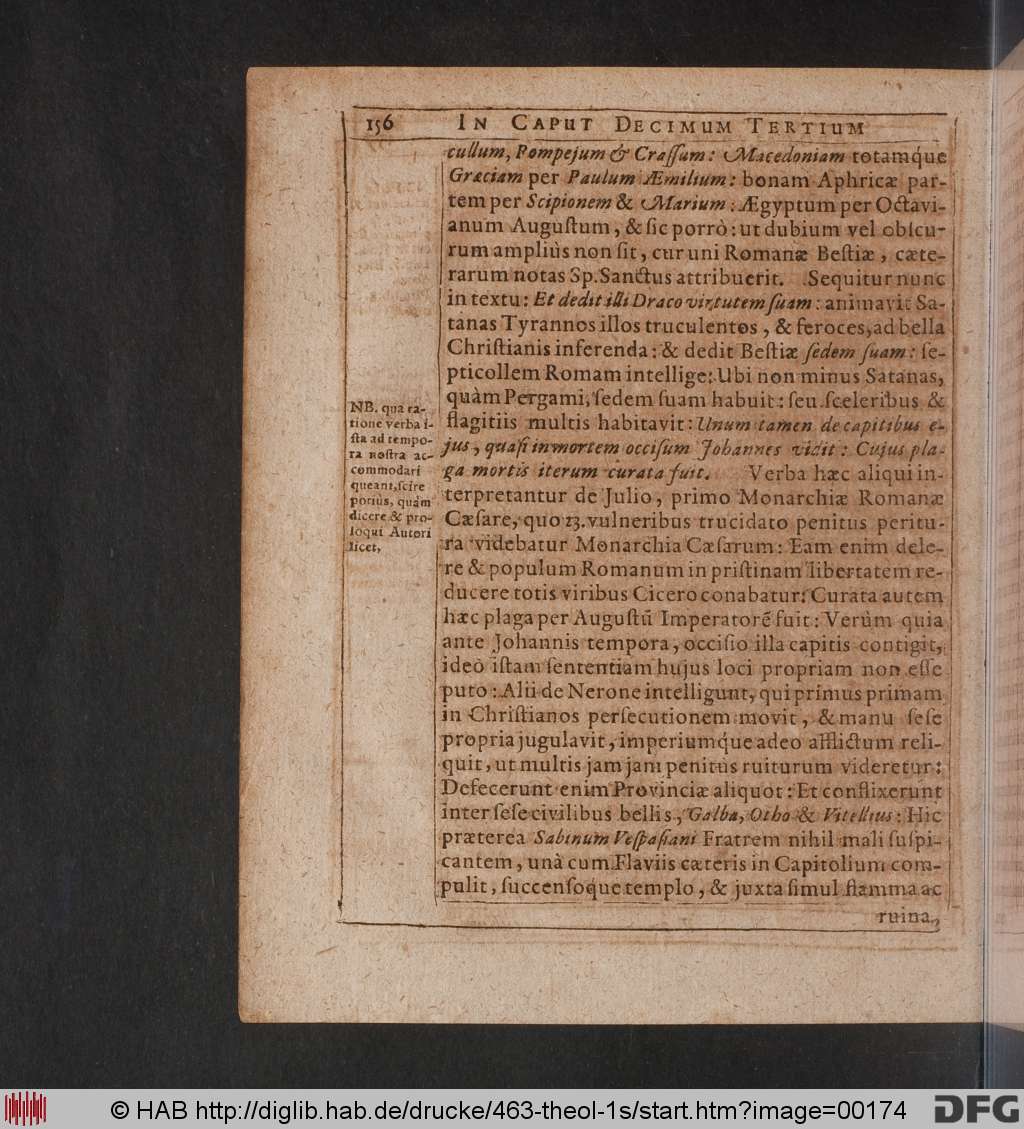 156 IN CAPUT DECIMUM TERTIUM
cullum, Pompejum & Craſſum: Macedoniam totamque
Græciam per Paulum Æmilium: bonam Aphricæ par-
tem per Scipionem & Marium: Ægyptum per Octavi-
anum Auguſtum, & ſic porrò: ut dubium vel obſcu-
rum ampliùs non ſit, cur uni Romanæ Beſtiæ, cæte-
rarum notas Sp. Sanctus attribuerit. Sequitur nunc
in textu: Et dedit illi Draco virtutem ſuam: animavit Sa-
tanas Tyrannos illos truculentos, & feroces, ad bella
Chriſtianis inferenda: & dedit Beſtiæ ſedem ſuam: ſe-
pticollem Romam intellige: Ubi non minus Satanas,
quàm Pergami, ſedem ſuam habuit: ſeu ſceleribus &
flagitiis multis habitavit: Unum tamen de capitibus e-
jus, quaſi in mortem occiſum Johannes vidit: Cujus pla-
ga mortis iterum curata fuit. Verba hæc aliqui in-
terpretantur de Julio, primo Monarchiæ Romanæ
Cæſare, quo 23. vulneribus trucidato penitus peritu-
ra videbatur Monarchia Cæſarum: Eam enim dele-
re & populum Romanum in priſtinam libertatem re-
ducere totis viribus Cicero conabatur: Curata autem
hæc plaga per Auguſtū Imperatorē fuit: Verùm quia
ante Johannis tempora, occiſio illa capitis contigit,
ideò iſtam ſententiam hujus loci propriam non eſſe
puto: Alii de Nerone intelligunt, qui primus primam
in Chriſtianos perſecutionem movit, & manu ſeſe
propria jugulavit, imperiumque adeo afflictum reli-
quit, ut multis jam jam penitùs ruiturum videretur:
Defecerunt enim Provinciæ aliquot: Et conflixerunt
inter ſeſe civilibus bellis, Galba, Otho & Vitellius: Hic
præterea Sabinum Veſpaſiani Fratrem nihil mali ſuſpi-
cantem, unà cum Flaviis cæteris in Capitolium com-
pulit, ſuccenſoque templo, & juxta ſimul flamma ac
ruina,
NB. qua ra-
tione verba i-
ſta ad tempo-
ra noſtra ac-
commodari
queant, ſcire
potiùs, quàm
dicere & pro-
loqui Autori
licet,
© HAB http://diglib.hab.de/drucke/463-theol-1s/start.htm?image=00174
DFG